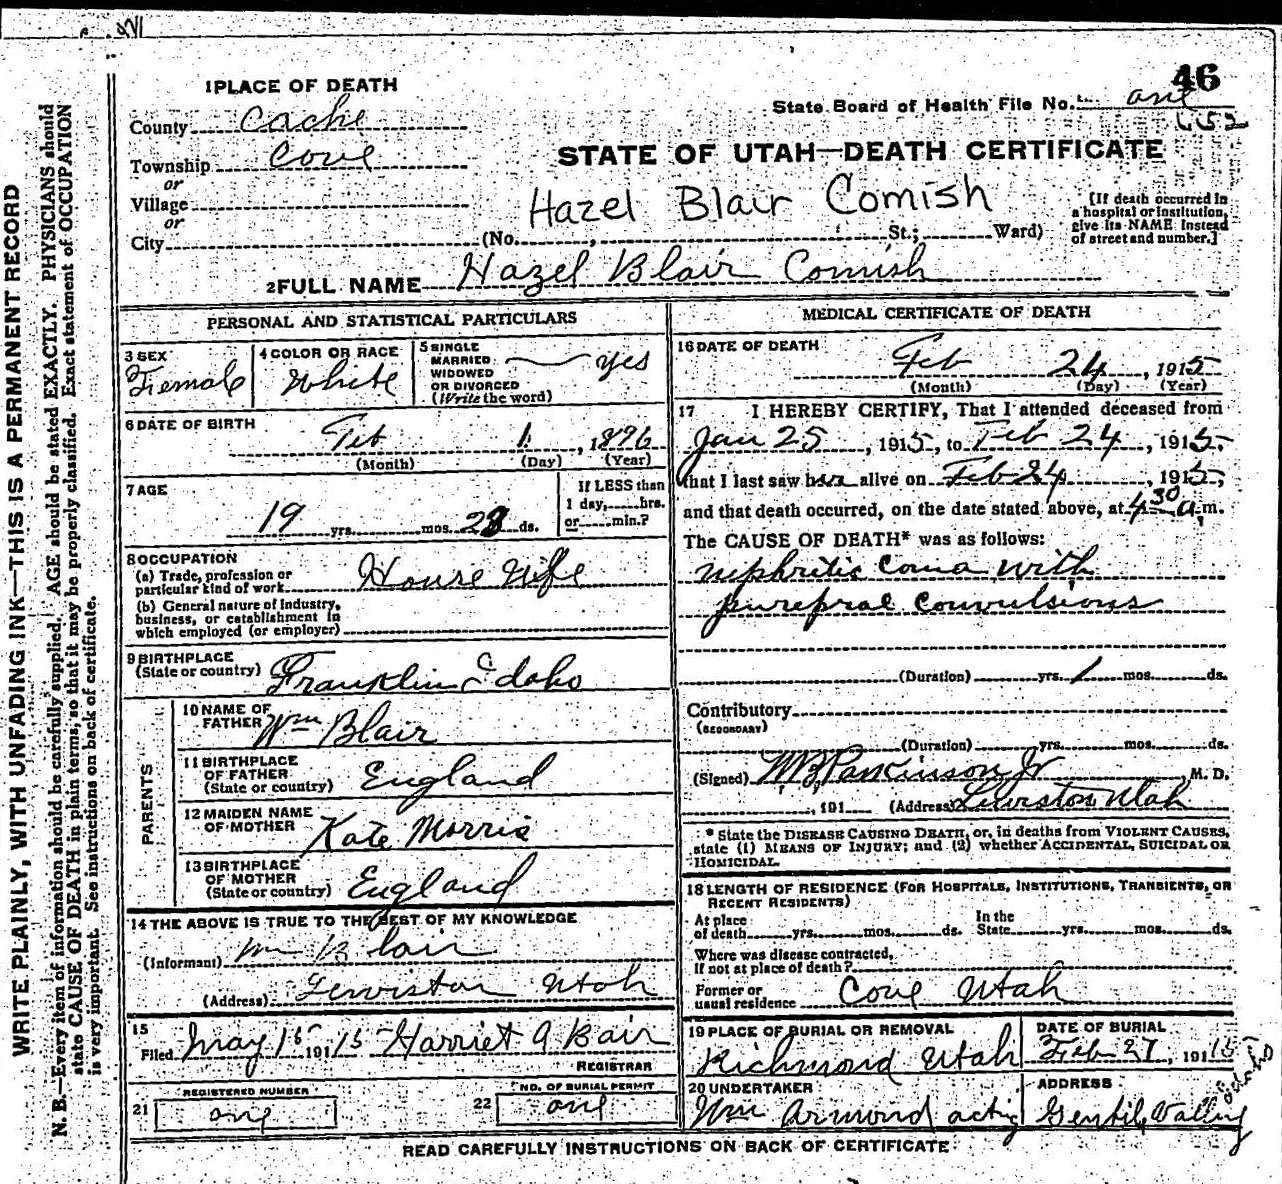 46
1 PLACE OF DEATH
State Board of Health File No. one
652
County Cache
Township Cove
or
Village
or
City
STATE OF UTAH—DEATH CERTIFICATE
Hazel Blair Comish
(No. , St.; Ward)
[If death occurred in
a hospital or institution,
give its NAME instead
of street and number.]
2 FULL NAME Hazel Blair Comish
PERSONAL AND STATISTICAL PARTICULARS
3 SEX
Female
4 COLOR OR RACE
White
5 SINGLE
MARRIED yes
WIDOWED
OR DIVORCED
(Write the word)
6 DATE OF BIRTH
Feb 1, 1896
(Month) (Day) (Year)
7 AGE
19 yrs. mos. 23 ds.
If LESS than
1 day, hrs.
or min.?
8 OCCUPATION
(a) Trade, profession or
particular kind of work House Wife
(b) General nature of industry,
business, or establishment in
which employed (or employer)
9 BIRTHPLACE
(State or country) Franklin Idaho
PARENTS
10 NAME OF
FATHER Wm Blair
11 BIRTHPLACE
OF FATHER
(State or country) England
12 MAIDEN NAME
OF MOTHER Kate Morris
13 BIRTHPLACE
OF MOTHER
(State or country) England
14 THE ABOVE IS TRUE TO THE BEST OF MY KNOWLEDGE
(Informant) Wm Blair
(Address) Lewiston Utah
15
Filed May 15 191 15 Harriet A Bair
REGISTRAR
21 REGISTERED NUMBER
one
22 NO. OF BURIAL PERMIT
one
MEDICAL CERTIFICATE OF DEATH
16 DATE OF DEATH
Feb 24, 1915
(Month) (Day) (Year)
17 I HEREBY CERTIFY, That I attended deceased from
Jan 25, 1915, to Feb 24, 1915
that I last saw her alive on Feb 24, 1915,
and that death occurred, on the date stated above, at 4 30 a.m.
The CAUSE OF DEATH* was as follows:
nephritic coma with
purepral convulsions
(Duration) yrs. 1 mos. ds.
Contributory
(SECONDARY)
(Duration) yrs. mos. ds.
(Signed) W B Parkinson Jr, M. D.
, 191 (Address) Lewiston Utah
* State the DISEASE CAUSING DEATH, or, in deaths from VIOLENT CAUSES,
state (1) MEANS OF INJURY; and (2) whether ACCIDENTAL, SUICIDAL OR
HOMICIDAL.
18 LENGTH OF RESIDENCE (FOR HOSPITALS, INSTITUTIONS, TRANSIENTS, OR
RECENT RESIDENTS)
At place
of death yrs. mos. ds.
In the
State yrs. mos. ds.
Where was disease contracted,
If not at place of death?
Former or
usual residence Cove Utah
19 PLACE OF BURIAL OR REMOVAL
Richmond Utah
DATE OF BURIAL
Feb 27, 191 15
20 UNDERTAKER
Wm Armond actig
ADDRESS
Gentile Valley
Idaho
READ CAREFULLY INSTRUCTIONS ON BACK OF CERTIFICATE
WRITE PLAINLY, WITH UNFADING INK—THIS IS A PERMANENT RECORD
N. B.—Every item of information should be carefully supplied. AGE should be stated EXACTLY. PHYSICIANS should
state CAUSE OF DEATH in plain terms, so that it may be properly classified. Exact statement of OCCUPATION
is very important. See instructions on back of certificate.